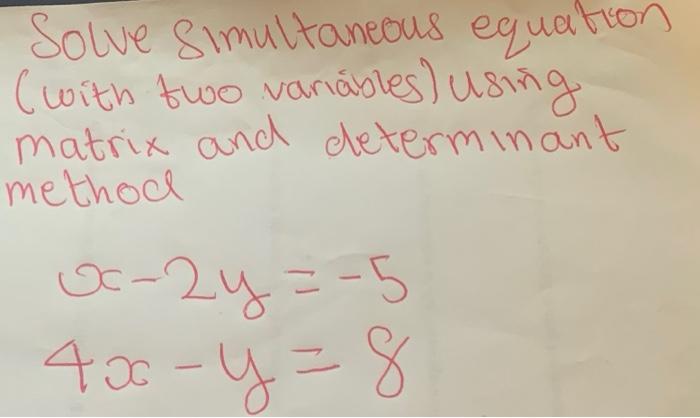 Solve simultaneous equation
(with two variables) using
matrix and determinant
method
x - 2y = -5
4x - y = 8